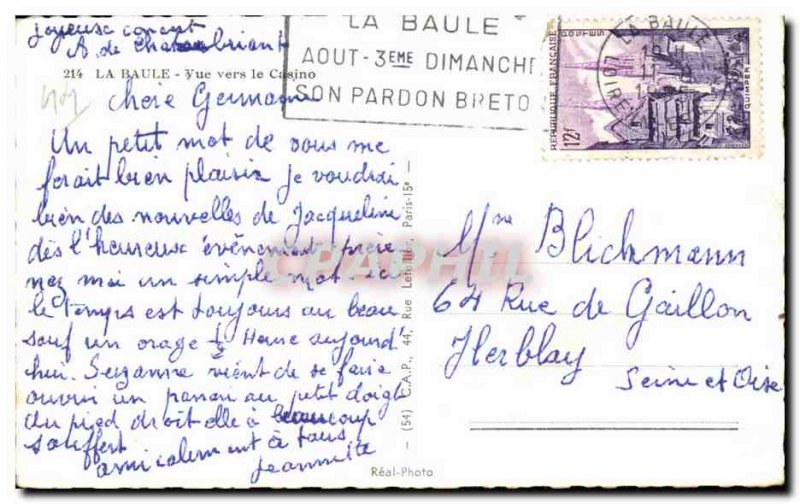 Joyeuse
A. de Chateaubriant
214 LA BAULE - Vue vers le Casino
Chère Germaine
Un petit mot de vous me
ferait bien plaisir je voudrai
bien des nouvelles de Jacqueline
dès l'heureuse événement préve
nez moi un simple mot ici
le temps est toujours au beau
sauf un orage ½ Heure aujourd'
hui. Suzanne vient de se faire
ouvrir un panari au petit doigt
du pied droit elle à beaucoup
souffert
amicalement à tous
Jeannette
LA BAULE
AOUT - 3EME DIMANCHE
SON PARDON BRETO
LA BAULE
REPUBLIQUE FRANCAISE
12f
QUIMPER
Mme Blickmann
64 Rue de Gaillon
Herblay
Seine et Oise
(54) C.A.P., 44, Rue Letellier, Paris-15e
Réal-Photo
CPAPHIL